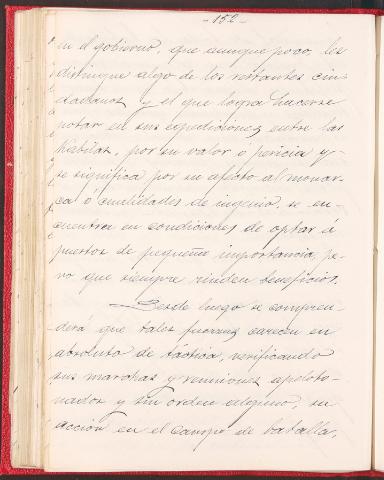 -152-
en el gobierno, que aunque poco, les
distingue algo de los restantes ciu-
dadanos y el que logra hacerse
notar en sus expediciones entre las
Kabilas, por su valor ó pericia y
se significa por su afecto al monar-
ca ó cualidades de ingenio, se en-
cuentra en condiciones de optar á
puestos de pequeña importancia, pe-
ro que siempre rinden beneficios.
Desde luego se compren-
derá que tales fuerzas carecen en
absoluto de táctica, verificando
sus marchas y reuniones apeloto-
nados y sin orden alguno, su
acción en el campo de batalla,